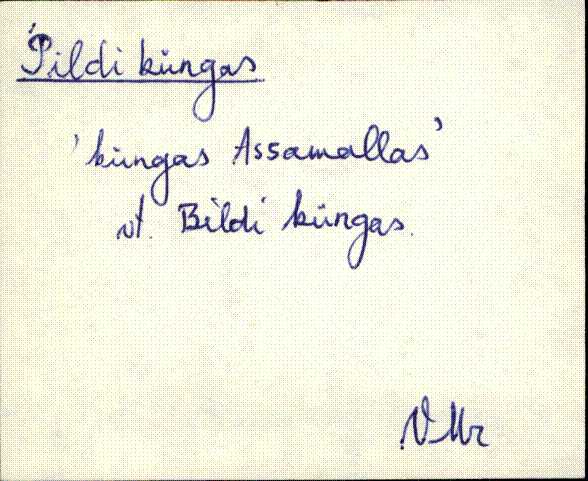 Pildi küngas
'küngas Assamallas'
vt. Bildi küngas.
VMr